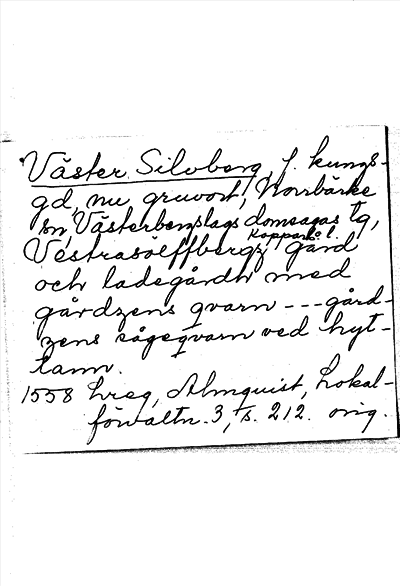 Väster Silvberg, f. kungs-
gd, nu gruvort, Norrbärke
sn, Västerbergslags domsagas tg,
Kopparb. l.
Vestrasölffbergz gård
och ladegårdh med
gårdzens qvarn --- gård-
zens sågeqvarn ved hyt-
tann.
1558 hreg, Almquist, Lokal-
förvaltn. 3, s. 212. orig.